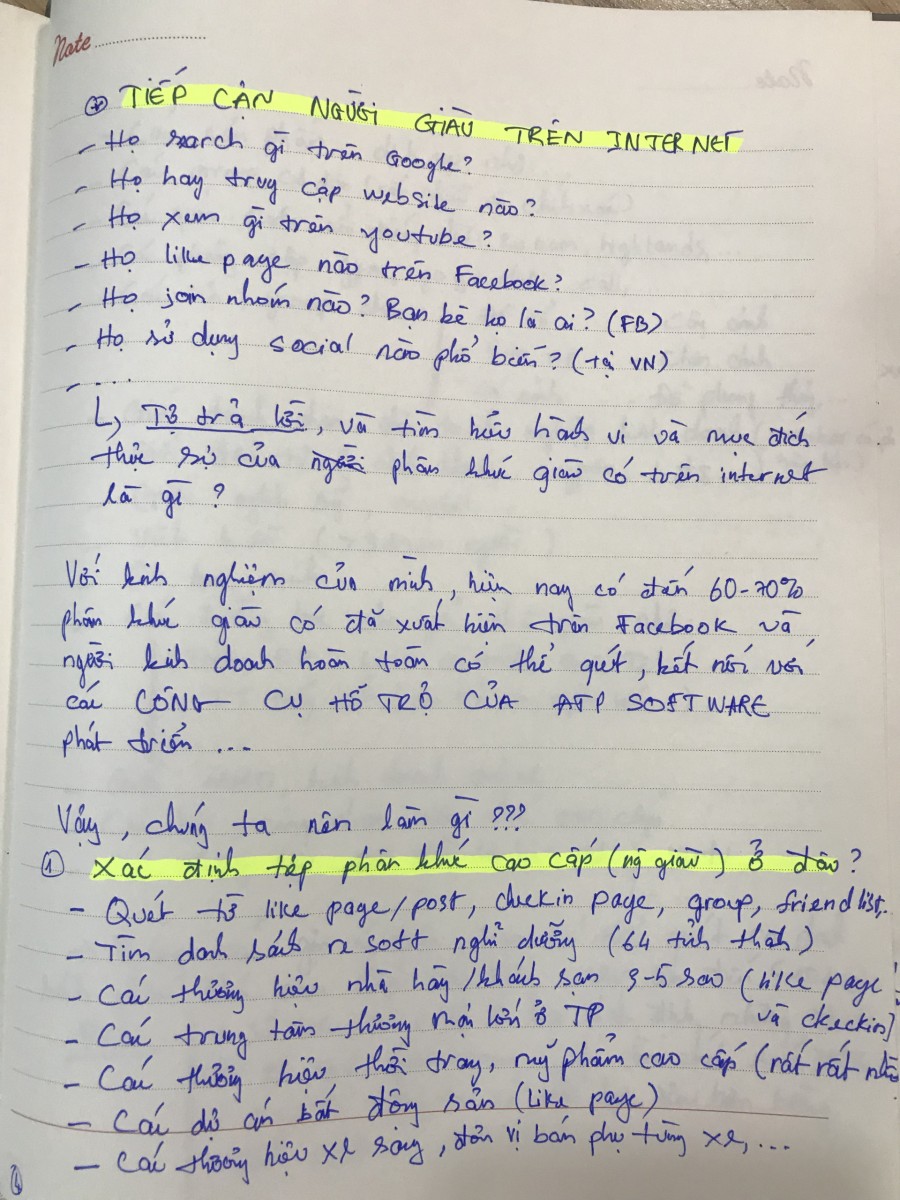 Note
TIẾP CẬN NGƯỜI GIÀU TRÊN INTERNET
- Họ search gì trên Google?
- Họ hay truy cập website nào?
- Họ xem gì trên youtube?
- Họ like page nào trên Facebook?
- Họ join nhóm nào? Bạn bè họ là ai? (FB)
- Họ sử dụng social nào phổ biến? (tại VN)
- ....
↳ Tự trả lời, và tìm hiểu hành vi và mục đích
thực sự của phân khúc giàu có trên internet
là gì?
Với kinh nghiệm của mình, hiện nay có đến 60-70%
phân khúc giàu có đã xuất hiện trên Facebook và
người kinh doanh hoàn toàn có thể quét, kết nối với
các CÔNG CỤ HỖ TRỢ CỦA ATP SOFTWARE
phát triển ...
Vậy, chúng ta nên làm gì ???
① Xác định tệp phân khúc cao cấp (ng giàu) ở đâu?
- Quét từ like page/post, checkin page, group, friend list,..
- Tìm danh sách resott nghỉ dưỡng (64 tỉnh thành)
- Các thương hiệu nhà hàng/khách sạn 3-5 sao (like page
và checkin)
- Các trung tâm thương mại lớn ở TP
- Các thương hiệu thời trang, mỹ phẩm cao cấp (rất rất
- Các dự án bất động sản (like page)
- Các thương hiệu xe sang, đơn vị bán phụ tùng xe, ...